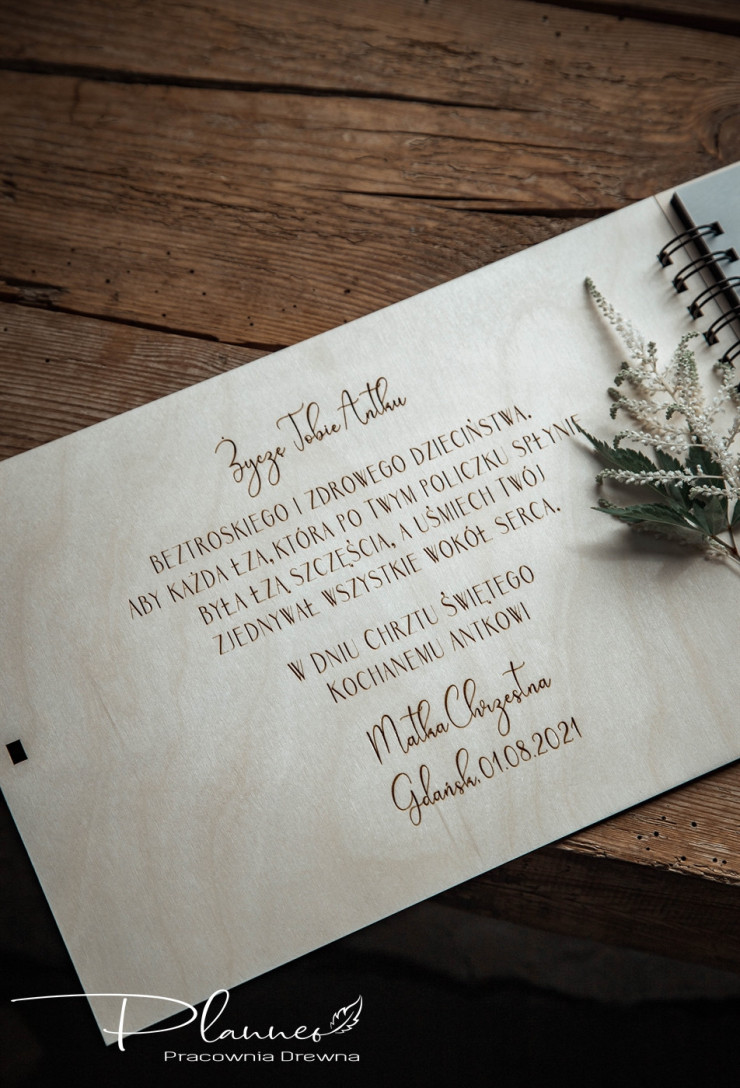 Życzę Tobie Antku
BEZTROSKIEGO I ZDROWEGO DZIECIŃSTWA.
ABY KAŻDA ŁZA, KTÓRA PO TWYM POLICZKU SPŁYNIE
BYŁA ŁZĄ SZCZĘŚCIA, A UŚMIECH TWÓJ
ZJEDNYWAŁ WSZYSTKIE WOKÓŁ SERCA.
W DNIU CHRZTU ŚWIĘTEGO
KOCHANEMU ANTKOWI
Matka Chrzestna
Gdańsk, 01.08.2021
Planneo
Pracownia Drewna